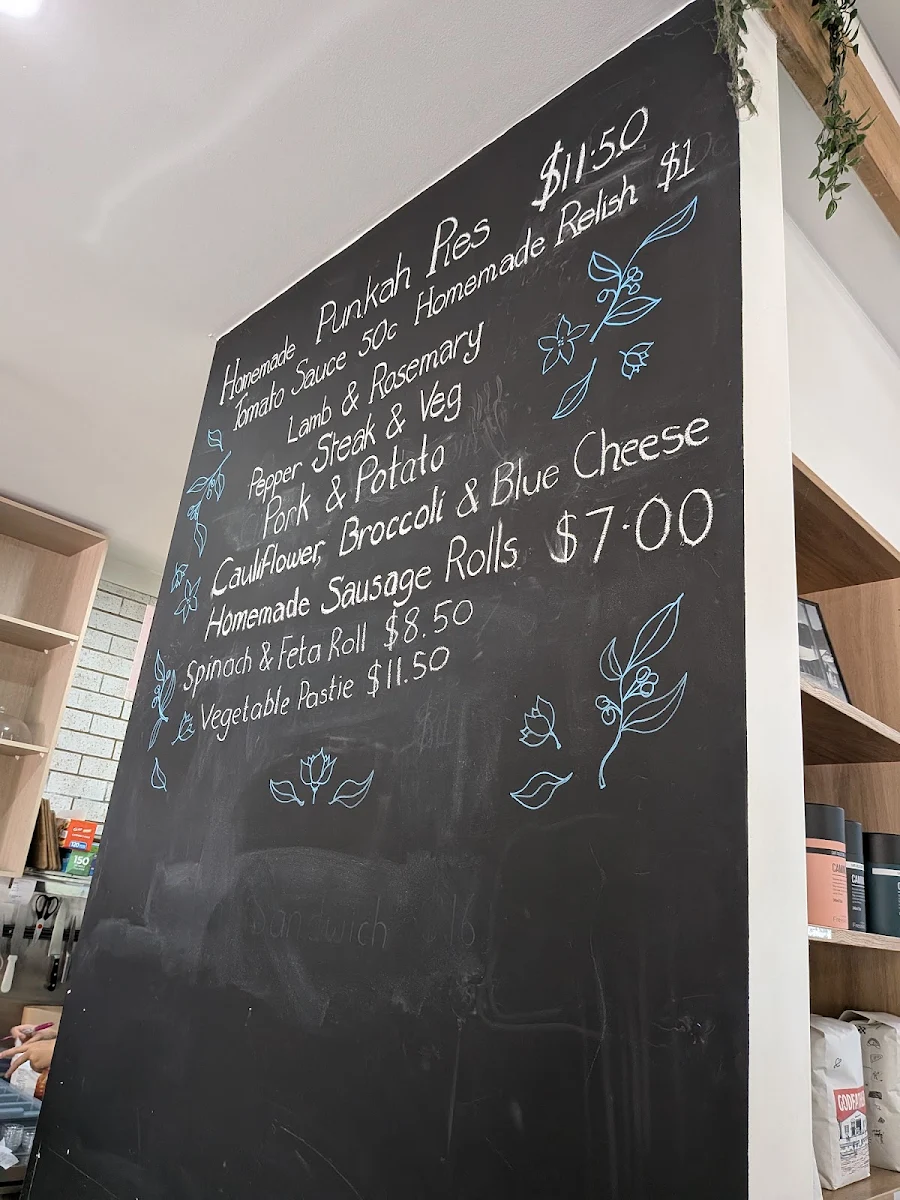 Homemade Punkah Pies $11.50
Tomato Sauce 50c Homemade Relish $1
Lamb & Rosemary
Pepper Steak & Veg
Pork & Potato
Cauliflower, Broccoli & Blue Cheese
Homemade Sausage Rolls $7.00
Spinach & Feta Roll $8.50
Vegetable Pastie $11.50
Sandwich
150
GODFATHER